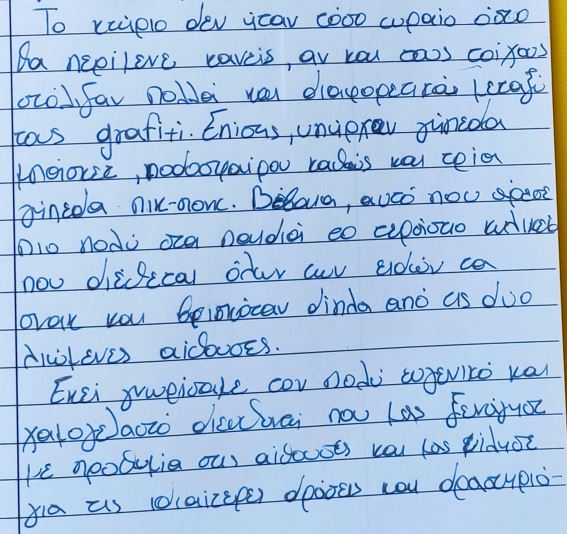 Το κτίριο δεν ήταν τόσο ωραίο όσο
θα περίμενε κανείς, αν και τους τοίχους
στόλιζαν πολλά και διαφορετικά μεταξύ
τους grafiti. Επίσης, υπήρχαν γήπεδα
μπάσκετ, ποδοσφαίρου καθώς και τρία
γήπεδα πικ-πονκ. Βέβαια, αυτό που άρεσε
πιο πολύ στα παιδιά το τεράστιο κυλικείο
που διέθεται όλων των ειδών τα
σνακ και βρισκόταν δίπλα από τις δυο
λιωμένες αίθουσες.
Εκεί γνωρίσαμε τον πολύ ευγενικό και
χαμογελαστό διευθυντή που μας ξενάγησε
με προθυμία στις αίθουσες και μας μίλησε
για τις ιδιαίτερες δράσεις και δραστηριό-